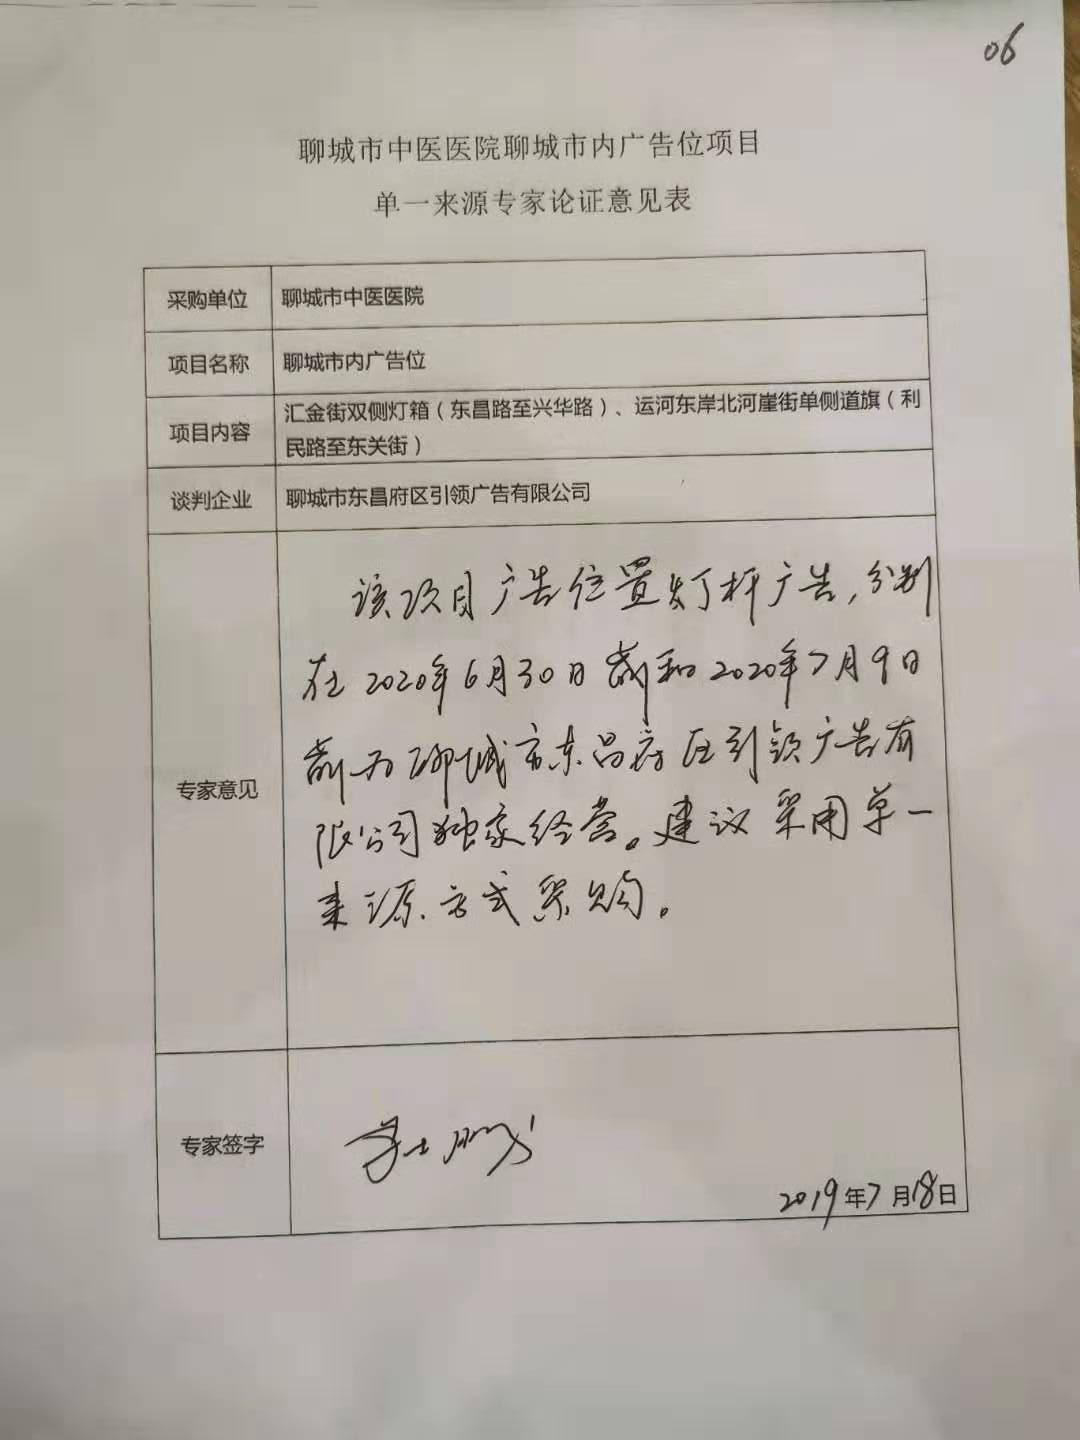 06
聊城市中医医院聊城市内广告位项目
单一来源专家论证意见表
采购单位
聊城市中医医院
项目名称
聊城市内广告位
项目内容
汇金街双侧灯箱（东昌路至兴华路）、运河东岸北河崖街单侧道旗（利
民路至东关街）
谈判企业
聊城市东昌府区引领广告有限公司
专家意见
该项目广告位置灯杆广告，分别
在2020年6月30日前和2020年7月9日
前为聊城市东昌府区引领广告有
限公司独家经营。建议采用单一
来源方式采购。
专家签字
2019年7月18日